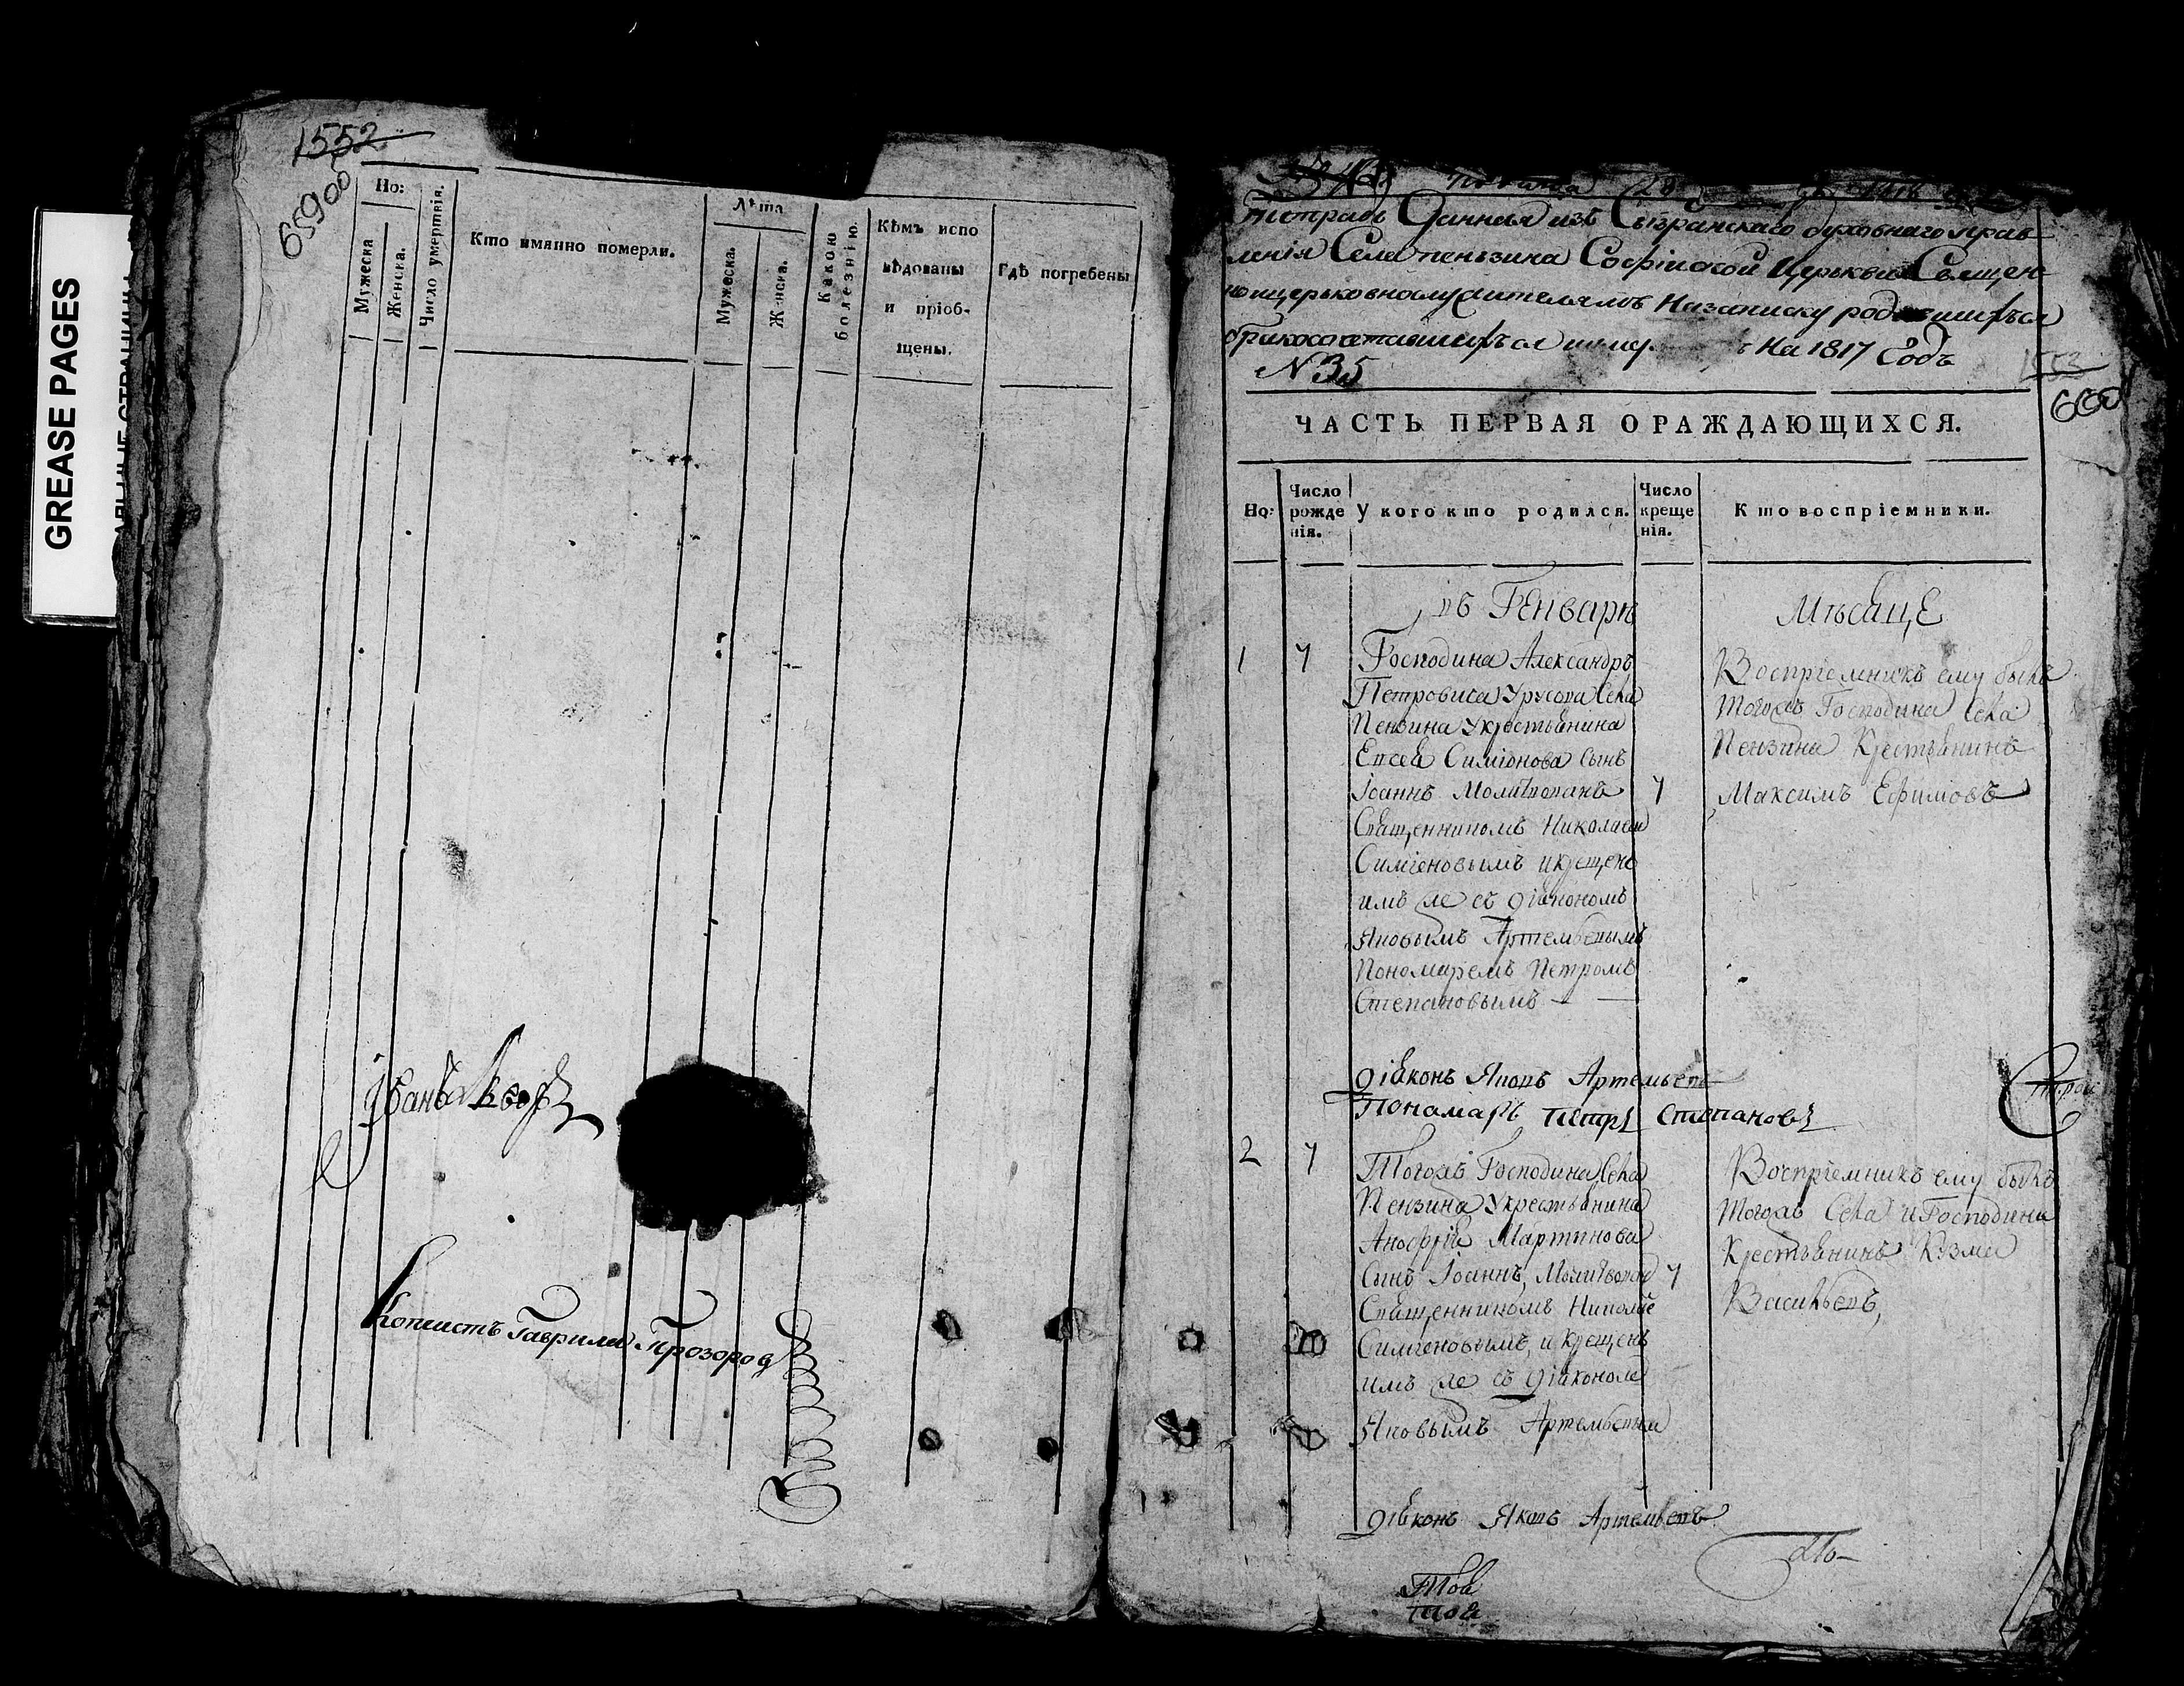 GREASE PAGES
1552
65900б
Но:
Мужеска
Женска.
Число умертвія.
Кто имянно померли.
Лѣта
Мужеска.
Женска.
Какою болезнію.
Кѣмъ испо
вѣдованы
и пріоб-
щены.
Гдѣ погребены
Іванъ
Копеистъ Гаврила Прозоров
тетрадь Данная изъ Сызранскаго духовнаго прав
ленія Села пензина Софійской Церькви Священ
ноцерьковнослужителямъ Назаписку родившихъся
бракосочетавшихъся На 1817 Годъ
N 35
1553
660
ЧАСТЬ ПЕРВАЯ О РАЖДАЮЩИХСЯ.
Но:
Число
рожде
нія.
У кого кто родился.
Число
креще
нія.
Кто воспріемники.
въ Генварѣ Мѣсяце
1 7 Господина Александръ
Петровича Урусова Села
Пензина Укрестьянина
Евсея Симіонова Сынъ
Іоаннъ Молитвованъ 7
Священникомъ Николаем
Симіеновымъ икрещенъ
имъ же съ діякономъ
Яковымъ Артемьевымъ
Пономаремъ Петромъ
Степановымъ —
Воспріемникъ ему былъ
Тогожъ Господина Села
Пензина Крестьянинъ
Максимъ Ефимовъ
діяконъ Яковъ Артемьевъ
Пономарь Петръ Степановъ
2 7 Тогожъ Господина Села
Пензина Укрестьянина
Анофрія Мартинова
Сынъ Іоаннъ, Молитвован 7
Священникомъ Николае
Симіеновымъ, и крещенъ
имъ же съ діякономъ
Яковымъ Артемьевым
Воспріемникъ ему былъ
Тогожъ Села и Господина
Крестьянинъ Козма
Васильевъ,
діяконъ Яковъ Артемьевъ